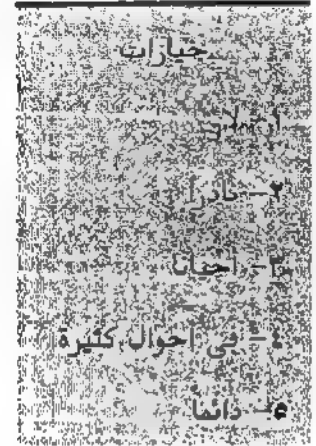 خيارات
٢ - نادرا
٣ - أحيانا
٤ - في أحوال كثيرة
٥ - دائماً